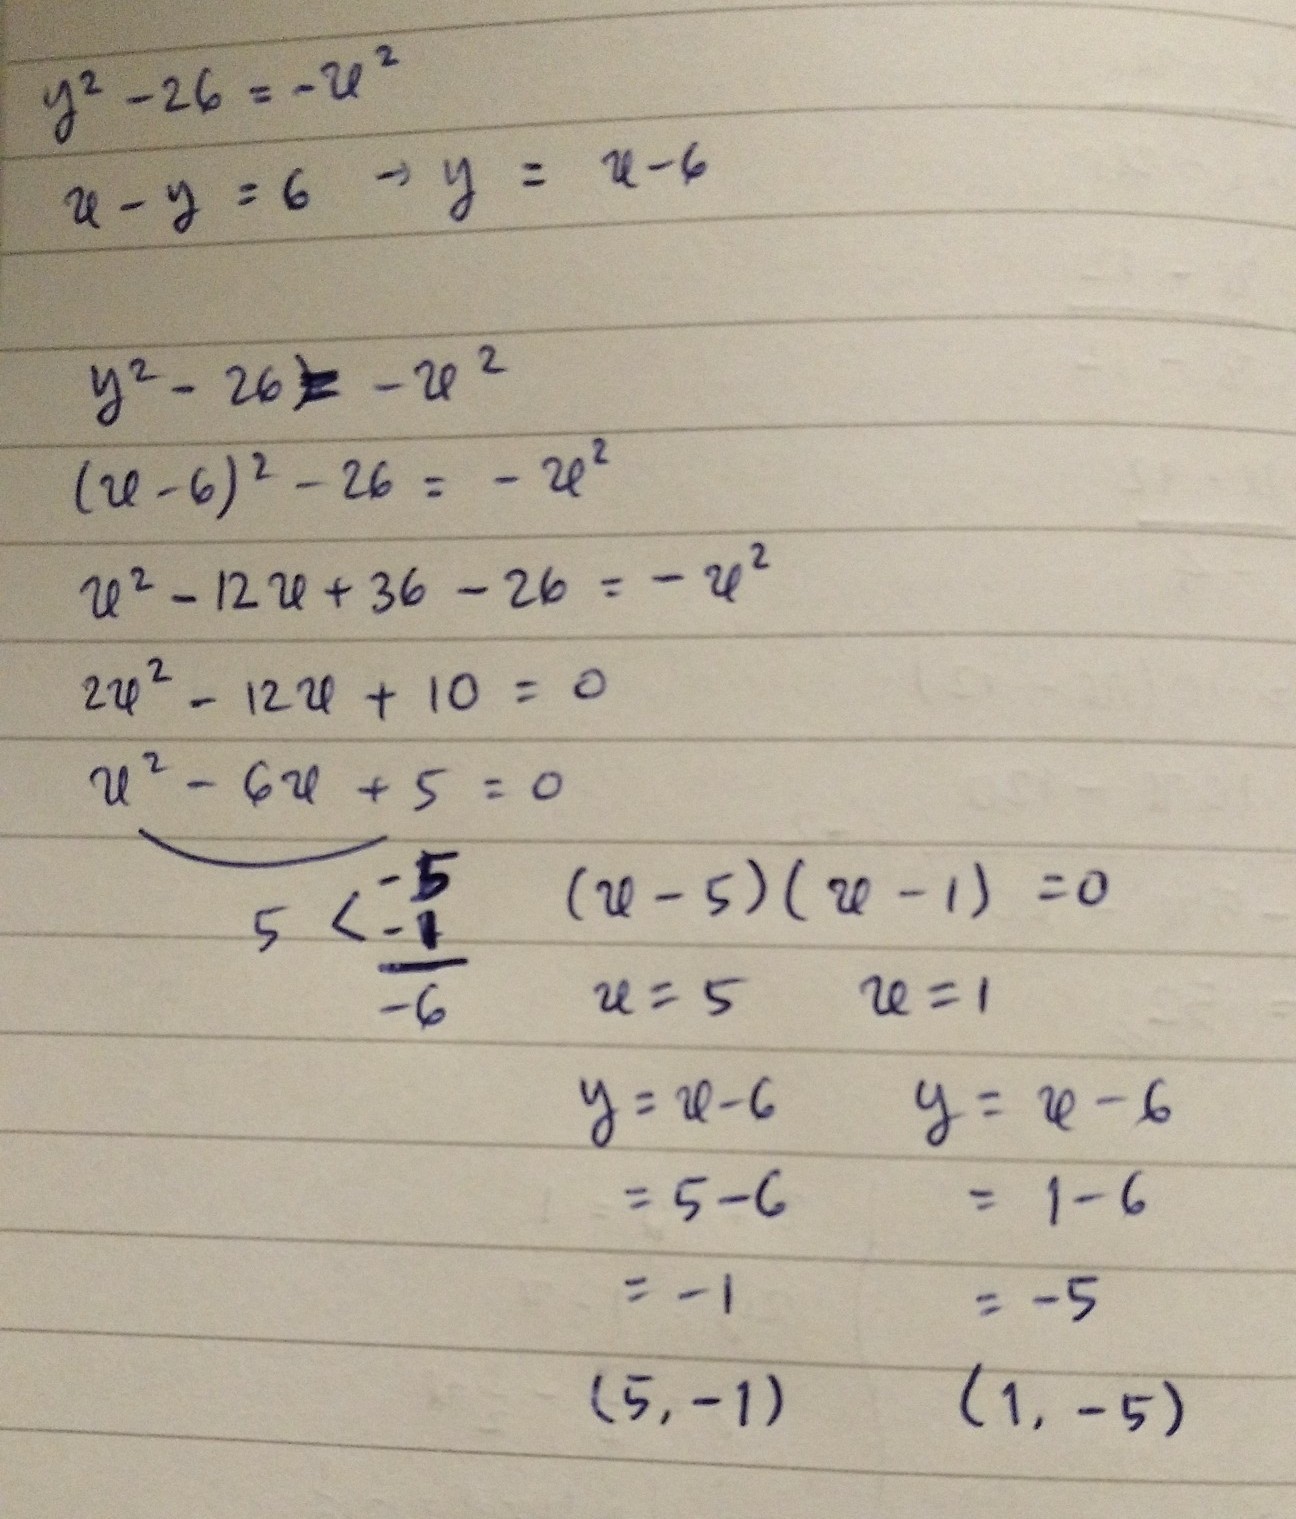 y² - 26 = -x²
x - y = 6 → y = x - 6
y² - 26 = -x²
(x - 6)² - 26 = -x²
x² - 12x + 36 - 26 = -x²
2x² - 12x + 10 = 0
x² - 6x + 5 = 0
5 < -5 (x - 5)(x - 1) = 0
-1
-6 x = 5 x = 1
y = x - 6 y = x - 6
= 5 - 6 = 1 - 6
= -1 = -5
(5, -1) (1, -5)